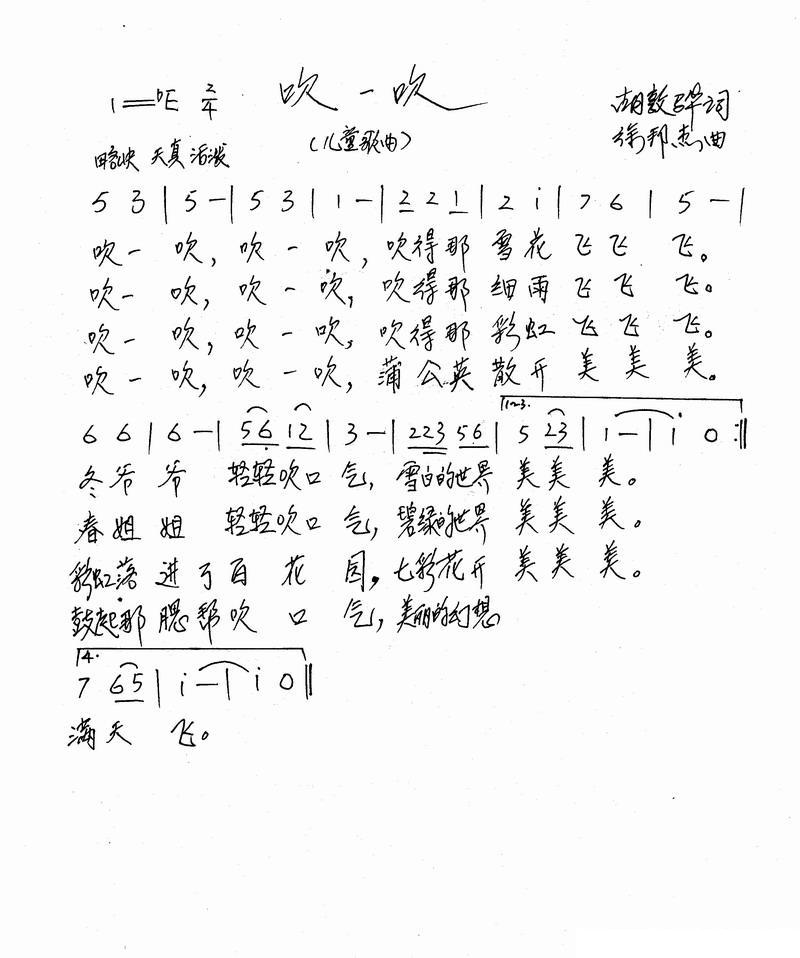 1=♭E 2/4 吹一吹 胡敦骅词
(儿童歌曲) 徐邦杰曲
略快 天真 活泼
5 3 | 5 — | 5 3 | 1 — | 2 2 1 | 2 i | 7 6 | 5 — |
吹一 吹, 吹一吹, 吹得那 雪花 飞飞 飞。
吹一 吹, 吹一吹, 吹得那 细雨 飞飞 飞。
吹一 吹, 吹一吹, 吹得那 彩虹 飞飞 飞。
吹一 吹, 吹一吹, 蒲公英 散开 美美 美。
1.2.3.
6 6 | 6 — | 56 12 | 3 — | 223 56 | 5 23 | 1 — | i 0 :||
冬爷 爷 轻轻吹口 气, 雪白的世界 美美 美。
春姐 姐 轻轻吹口 气, 碧绿的世界 美美 美。
彩虹落 进了百 花 园, 七彩花开 美美 美。
鼓起那 腮帮吹 口 气, 美丽的幻想
4.
7 65 | i — | i 0 ||
满天 飞。